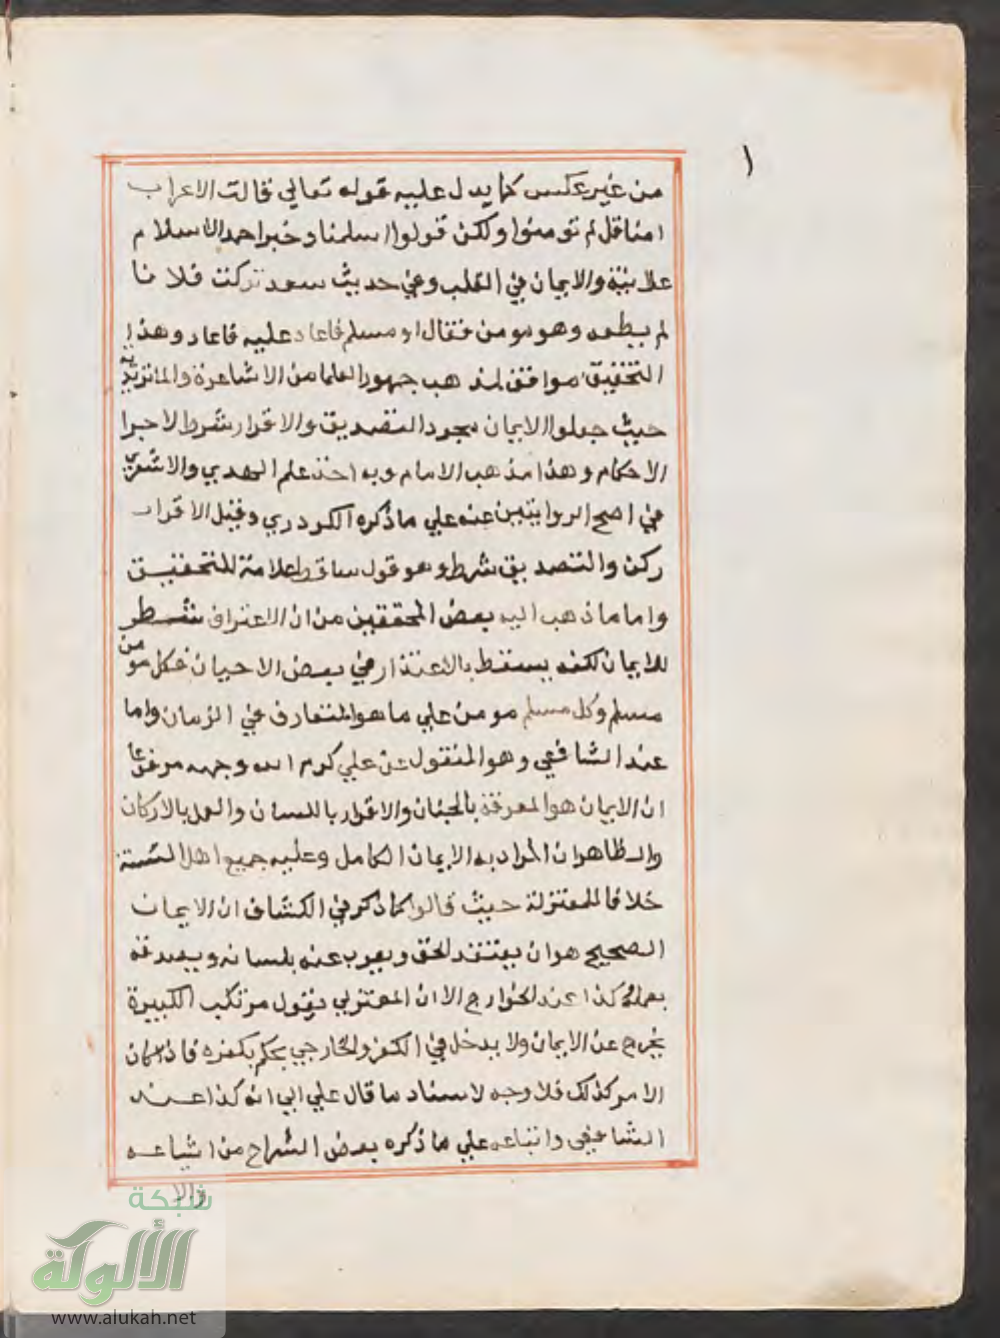 ١
من غير عكس كما يدل عليه قوله تعالي قالت الاعراب
امنا قل لم تومنوا ولكن قولوا اسلمنا وخبر احمد الاسلام
علانية والايمان في القلب وفي حديث سعد تركت فلانا
لم يعطه وهو مومن فقال او مسلم فاعاد عليه فاعاد وهذا
التحقيق موافق لمذهب جمهور العلما من الاشاعرة والماتريدية
حيث جعلوا الايمان مجرد التصديق والاقرار شرط لاجرا
الاحكام وهذا مذهب الامام وبه اخذ علم الهدي والاشعري
في اصح الروايتين عنه علي ما ذكره الكردري وقيل الاقرار
ركن والتصديق شرط وهو قول ساقط علامة للتحقيق
واما ما ذهب اليه بعض المحققين من ان الاعتراف شطر
للايمان لكنه يسقط بالاعتذار في بعض الاحيان فكل مومن
مسلم وكل مسلم مومن علي ما هو المتعارف في الزمان واما
عند الشافعي وهو المنقول عن علي كرم الله وجهه مرفوعا
ان الايمان هو المعرفة بالجنان والاقرار باللسان والعمل بالاركان
والظاهر ان المراد به الايمان الكامل وعليه جميع اهل السنة
خلافا للمعتزلة حيث قالوا كما ذكر في الكشاف ان الايمان
الصحيح هو ان يعتقد الحق ويعرب عنه بلسانه ويصدقه
بعمله كذا عند الخوارج الا ان المعتزلي يقول مرتكب الكبيرة
يخرج عن الايمان ولا يدخل في الكفر والخارجي يحكم بكفره فاذا كان
الامر كذلك فلا وجه لاسناد ما قال علي الي انه كذا عند
الشافعي واتباعه علي ما ذكره بعض الشراح من اشياعه
والا
شبكة
الألوكة
www.alukah.net